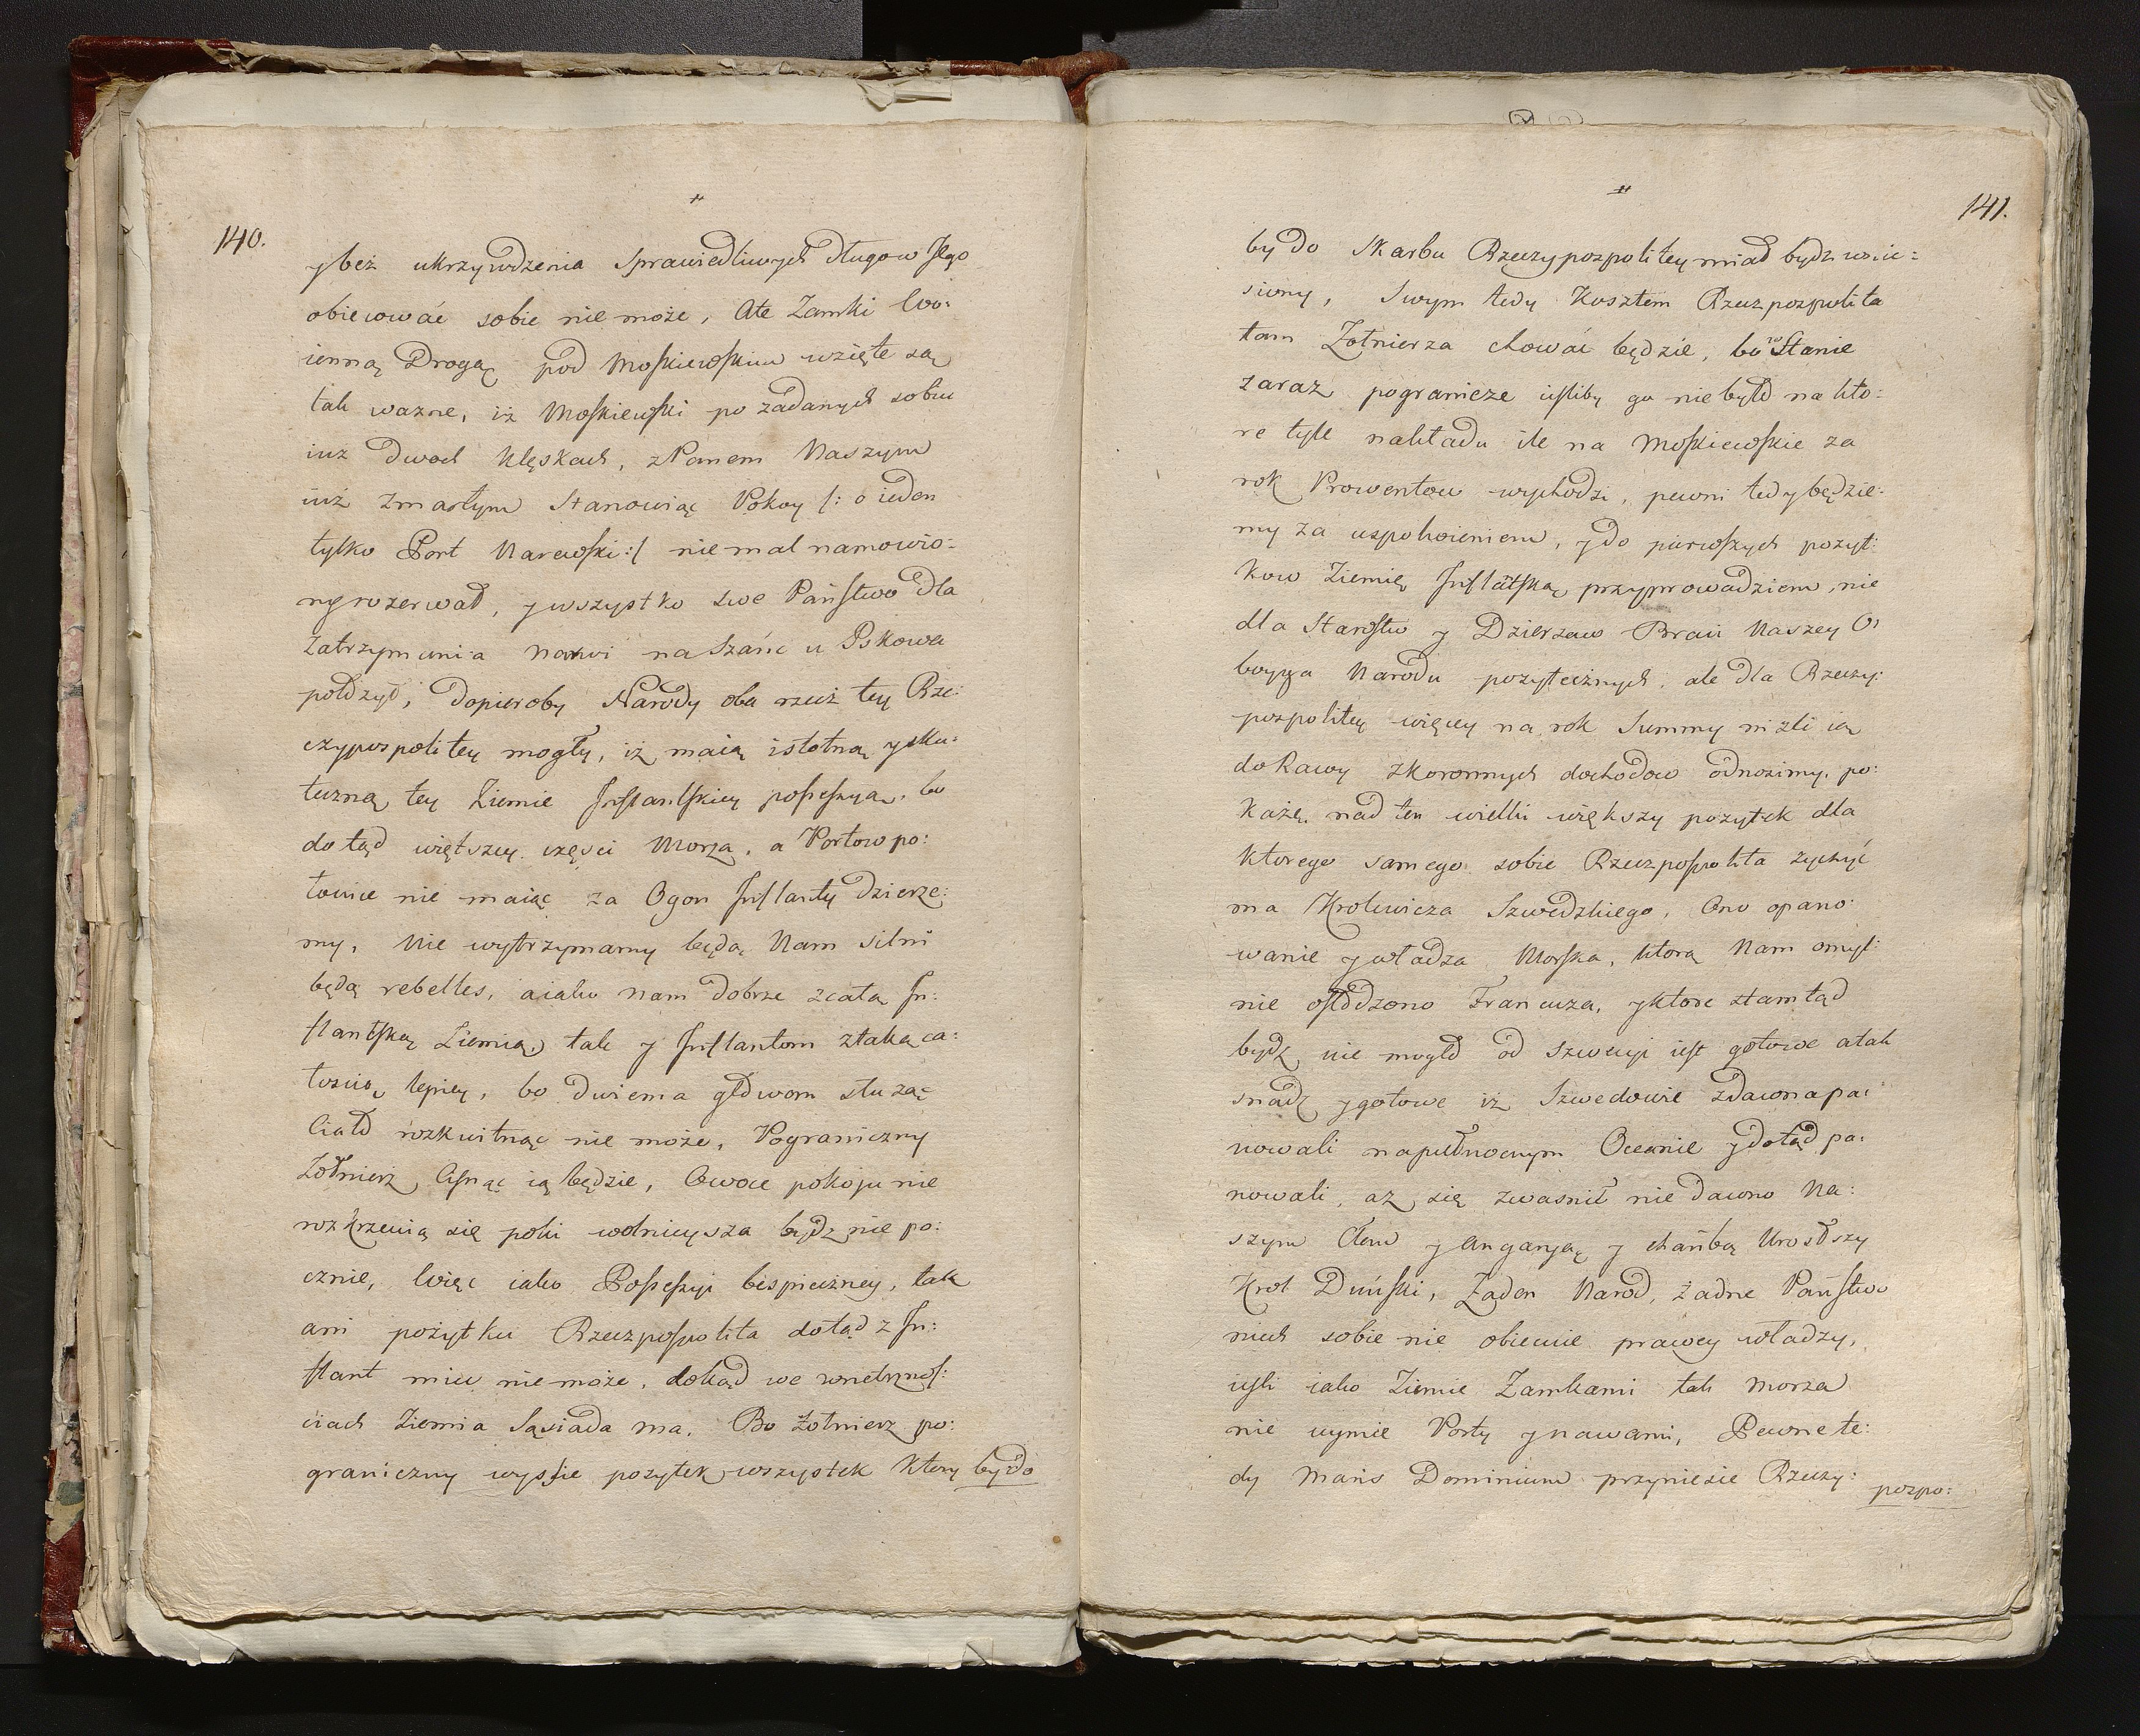 140.
y bez ukrzywdzenia Sprawiedliwych długow Jego
obiecować sobie nie może, Ate Zamki Wo:
ienną Drogą pod Moskiewskim wzięte są
tak wazne, iż Moskiewski po zadanych sobie
iuz dwoch klęskach, z Panem Naszym
iuż zmarłym Stanowiąc Pokoy /: o ieden
tylko Port Narewski :/ niemal namowio:
ny rozerwał, y wszystko swe Państwo dla
Zatrzymania Narwi na Szańc u Pskowa
położył, dopieroby Narody oba rzecz tey Rze:
czypospolitey mogły, iż maią istotną y sku:
teczną tey Ziemie Inflantskiey possessyą, bo
dotąd więtszey części Morza, a Portow po:
łowice nie maiąc za Ogon Inflanty dzierze:
my, Nie wytrzymamy będą Nam silni
będą rebelles, a iako nam dobrze z całą In:
flantską Ziemią, tak y Inflantom z taką ca:
łością lepiey, bo dwiema głowom służąc
Ciało rozkwitnąć nie może, Pograniczny
Żołnierz Cisnąć ią będzie, Owoce pokoju nie
rozkrzewią się poki wolnieysza bydz nie po:
cznie, Więc iako Possessyi bespieczney, tak
ani pożytku Rzeczpospolita dotąd z In:
flant mieć nie może, dokąd we wnetrznos:
ciach Ziemia Sąsiada ma. Bo żołnierz po:
graniczny wyssie pożytek wszystek ktory by do
141.
by do Skarbu Rzeczypospolitey miał bydz wnie:
siony, Swym tedy Kosztem Rzeczpospolita
tam Żołnierza chować będzie, bo Stanie
zaraz pogranicze iesliby go nie było na kto:
re tyle nakładu ile na Moskiewskie za
rok Prowentow wychodzi, pewni tedy będzie:
my za uspokoieniem, y do pierwszych pożyt:
kow Ziemię Inflatską przyprowadziem, nie
dla Starostw y Dzierzaw Braci Naszey O:
boyga Narodu pożytecżnych, ale dla Rzeczy:
pospolitey więcey na rok Summy nizli ią
do Rawy z Koronnych dochodow odnosimy, po:
każę, nad ten wielki większy pożytek dla
ktorego samego sobie Rzeczpospolita życzyć
ma Krolewicza Szwedzkiego, Ono opano:
wanie y władza Morska, ktorą Nam omyl:
nie osłodzono Francuza, y ktore ztamtąd
bydz nie mogło od Szwecyi iest gotowe a tak
snadz y gotowe iż Szwedowie zdawna pa:
nowali na pułnocnym Oceanie y dotąd pa:
nowali, aż się zwasnił nie dawno Na:
szym Cłem y Angaryą y chańbą Urosłszy
Krol Duński, Żaden Narod, żadne Państwo
niech sobie nie obiecuie prawey władzy,
iesli iako Ziemie Zamkami tak Morza
nie uymie Porty y nawami, Pewne te:
dy Maris Dominium przyniesie Rzeczy:
pozpo: